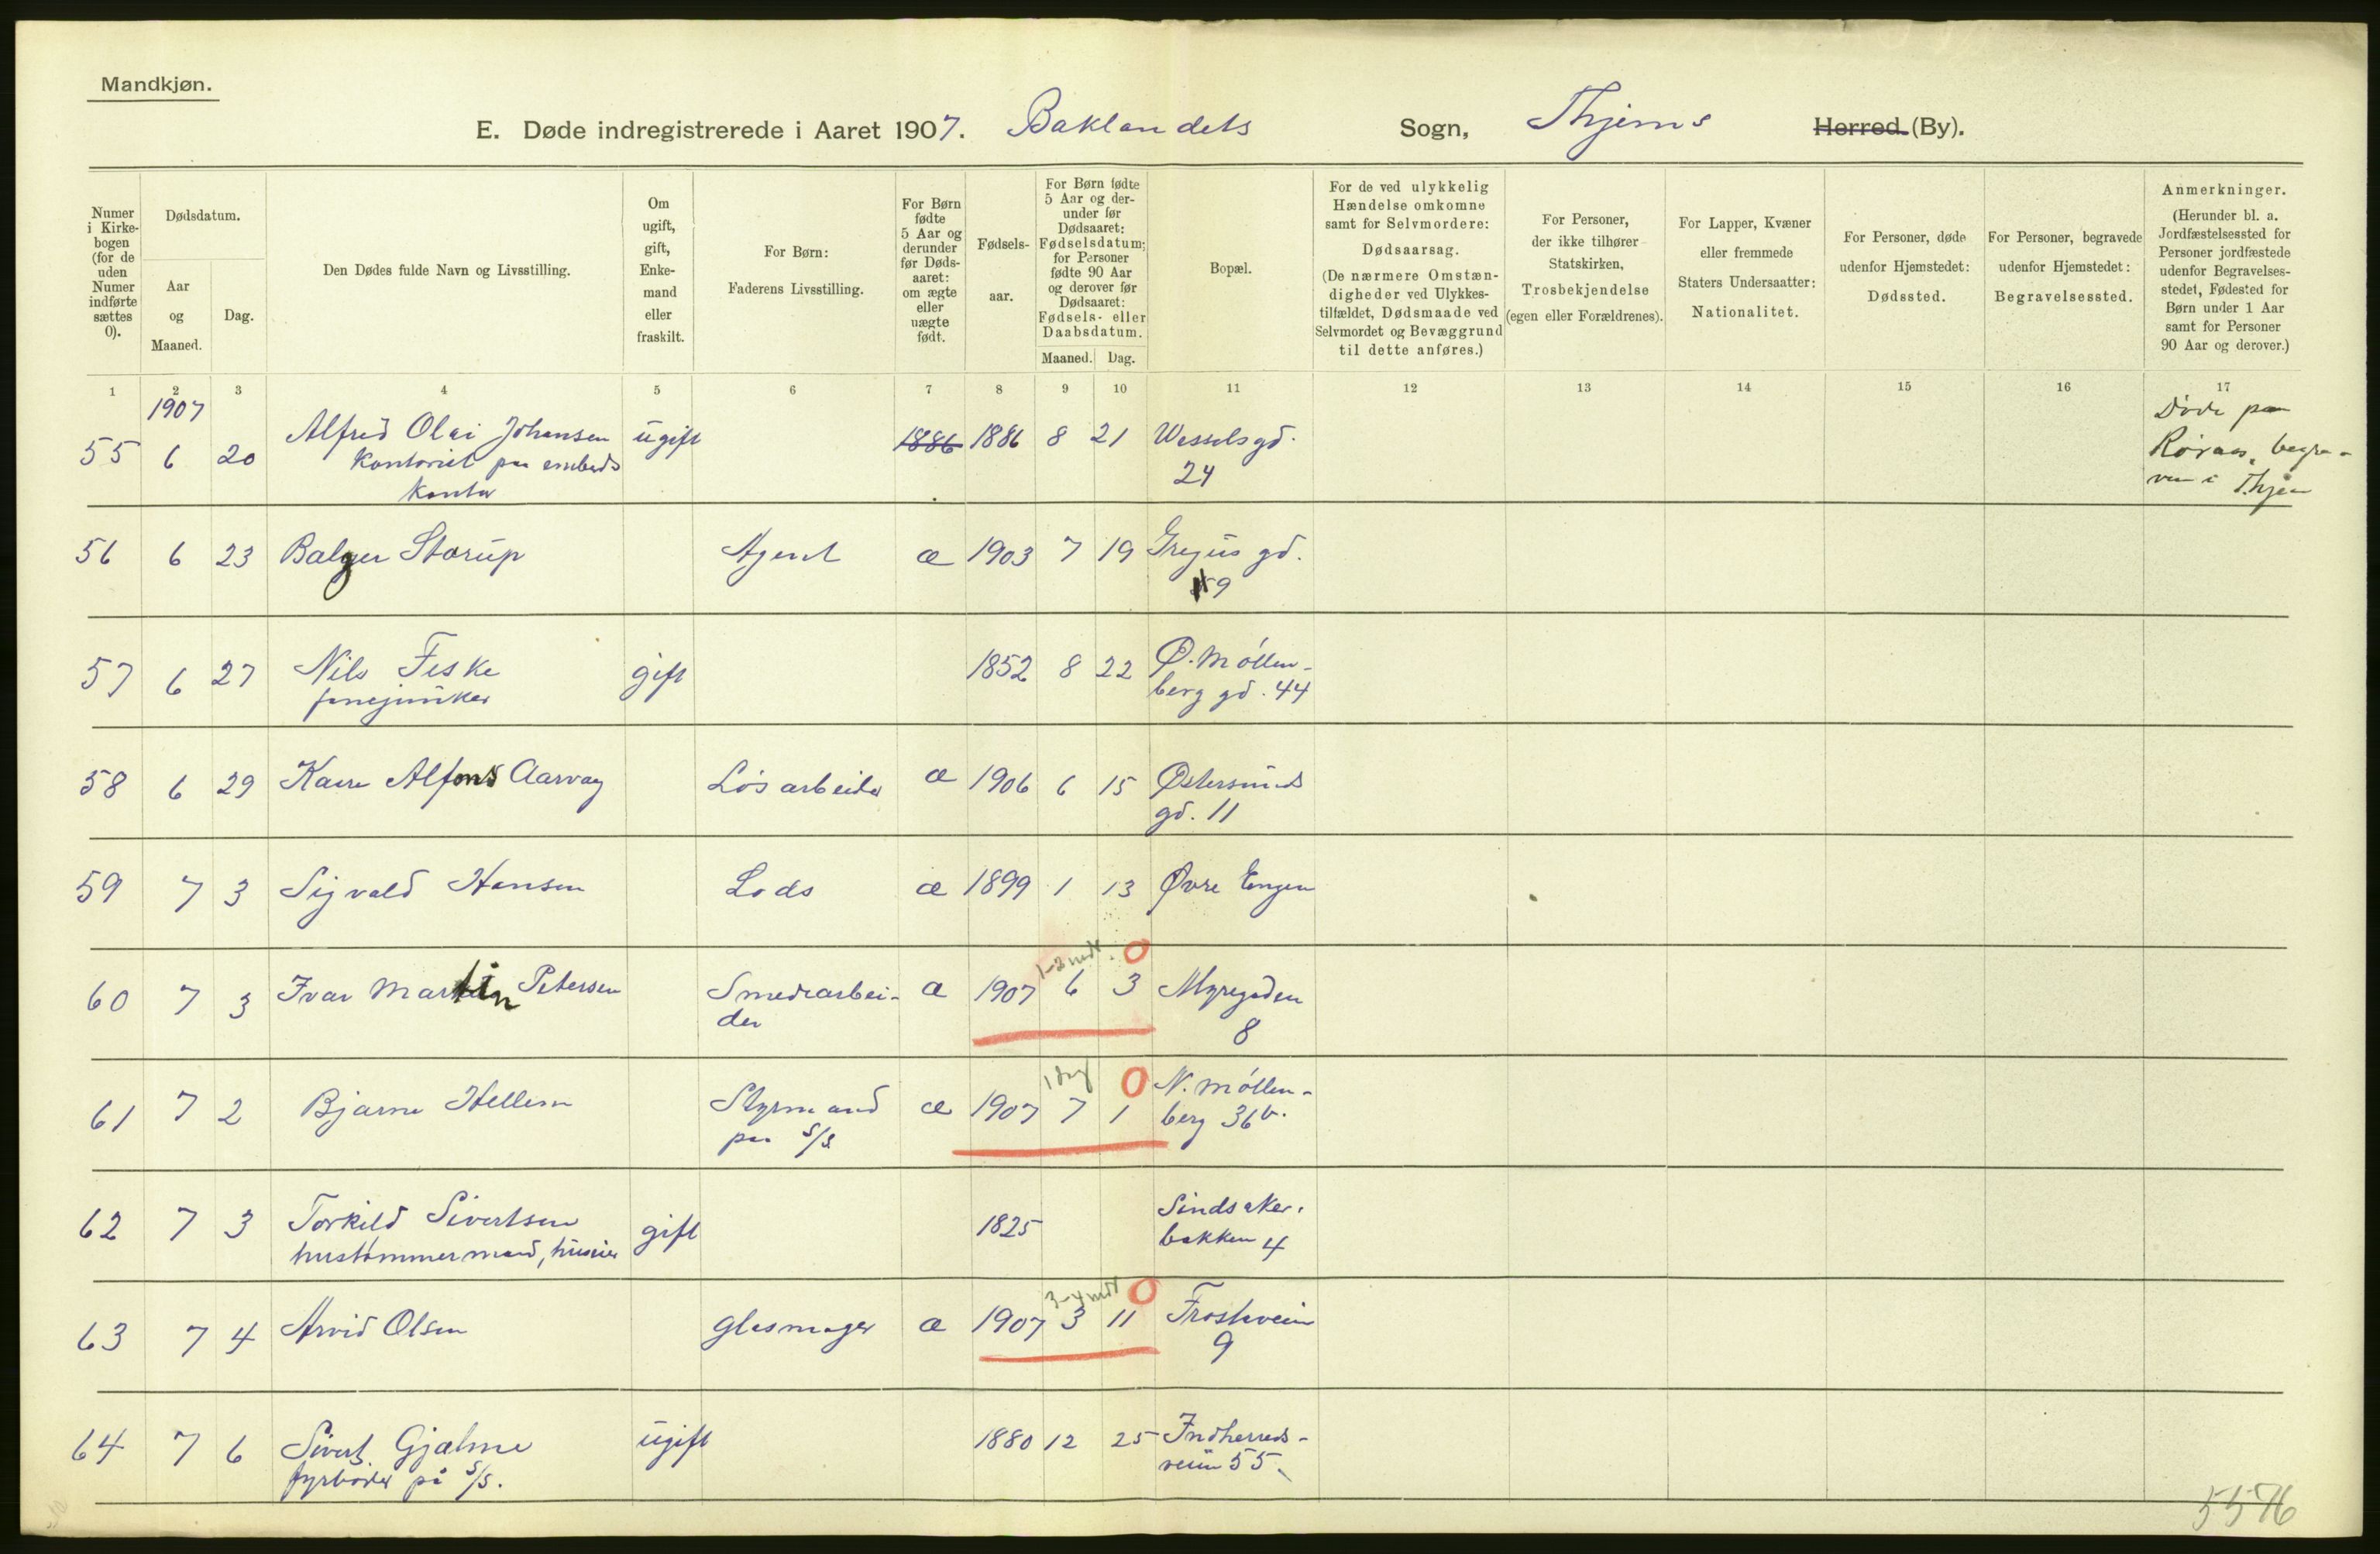 Mandkjøn.
E. Døde indregistrerede i Aaret 1907. Baklandets Sogn, Thjems Herred (By).
Numer i Kirkebogen (for de uden Numer indførte sættes 0).
Dødsdatum.
Aar og Maaned.
Dag.
Den Dødes fulde Navn og Livsstilling.
Om ugift, gift, Enkemand eller fraskilt.
For Børn: Faderens Livsstilling.
For Børn fødte 5 Aar og derunder før Dødsaaret: om ægte eller uægte født.
Fødselsaar.
For Børn fødte 5 Aar og derunder før Dødsaaret: Fødselsdatum; for Personer fødte 90 Aar og derover før Dødsaaret: Fødsels- eller Daabsdatum.
Maaned. Dag.
Bopæl.
For de ved ulykkelig Hændelse omkomne samt for Selvmordere: Dødsaarsag. (De nærmere Omstændigheder ved Ulykkestilfældet, Dødsmaade ved Selvmordet og Bevæggrund til dette anføres.)
For Personer, der ikke tilhører Statskirken, Trosbekjendelse (egen eller Forældrenes).
For Lapper, Kvæner eller fremmede Staters Undersaatter: Nationalitet.
For Personer, døde udenfor Hjemstedet: Dødssted.
For Personer, begravede udenfor Hjemstedet: Begravelsessted.
Anmerkninger. (Herunder bl. a. Jordfæstelsessted for Personer jordfæstede udenfor Begravelsesstedet, Fødested for Børn under 1 Aar samt for Personer 90 Aar og derover.)
1 2 3 4 5 6 7 8 9 10 11 12 13 14 15 16 17
1907
55 6 20 Alfred Olai Johansen ugift 1886 1886 8 21 Wesselsgd. Døde paa
kontorist paa embeds 24 Røraas, begra-
kontor ven i Thjem
56 6 23 Balger Storup Agent æ 1903 7 19 Gregus gd.
9
57 6 27 Nils Feske gift 1852 8 22 Ø. Møllen-
fanejunker berg gd. 44
58 6 29 Kaare Alfons Aarvag Løsarbeider æ 1906 6 15 Østersunds
gd. 11
59 7 3 Sigvald Hansen Lods æ 1899 1 13 Øvre Engen
1-2 mdr. 0
60 7 3 Ivar Martin Petersen Smedarbei- æ 1907 6 3 Myregaden
der 8
1 dag 0
61 7 2 Bjarne Hellem Styrmand æ 1907 7 1 N. Møllen-
paa S/S berg 36 b.
62 7 3 Torkild Sivertsen gift 1825 Sindsaker-
hustømmermand, huseier bakken 4
3-4 mdr 0
63 7 4 Arvid Olsen glasmager æ 1907 3 11 Frostaveien
9
64 7 6 Sivert Gjølme ugift 1880 12 25 Indherreds-
fyrbøder på S/S. veien 55.
5576